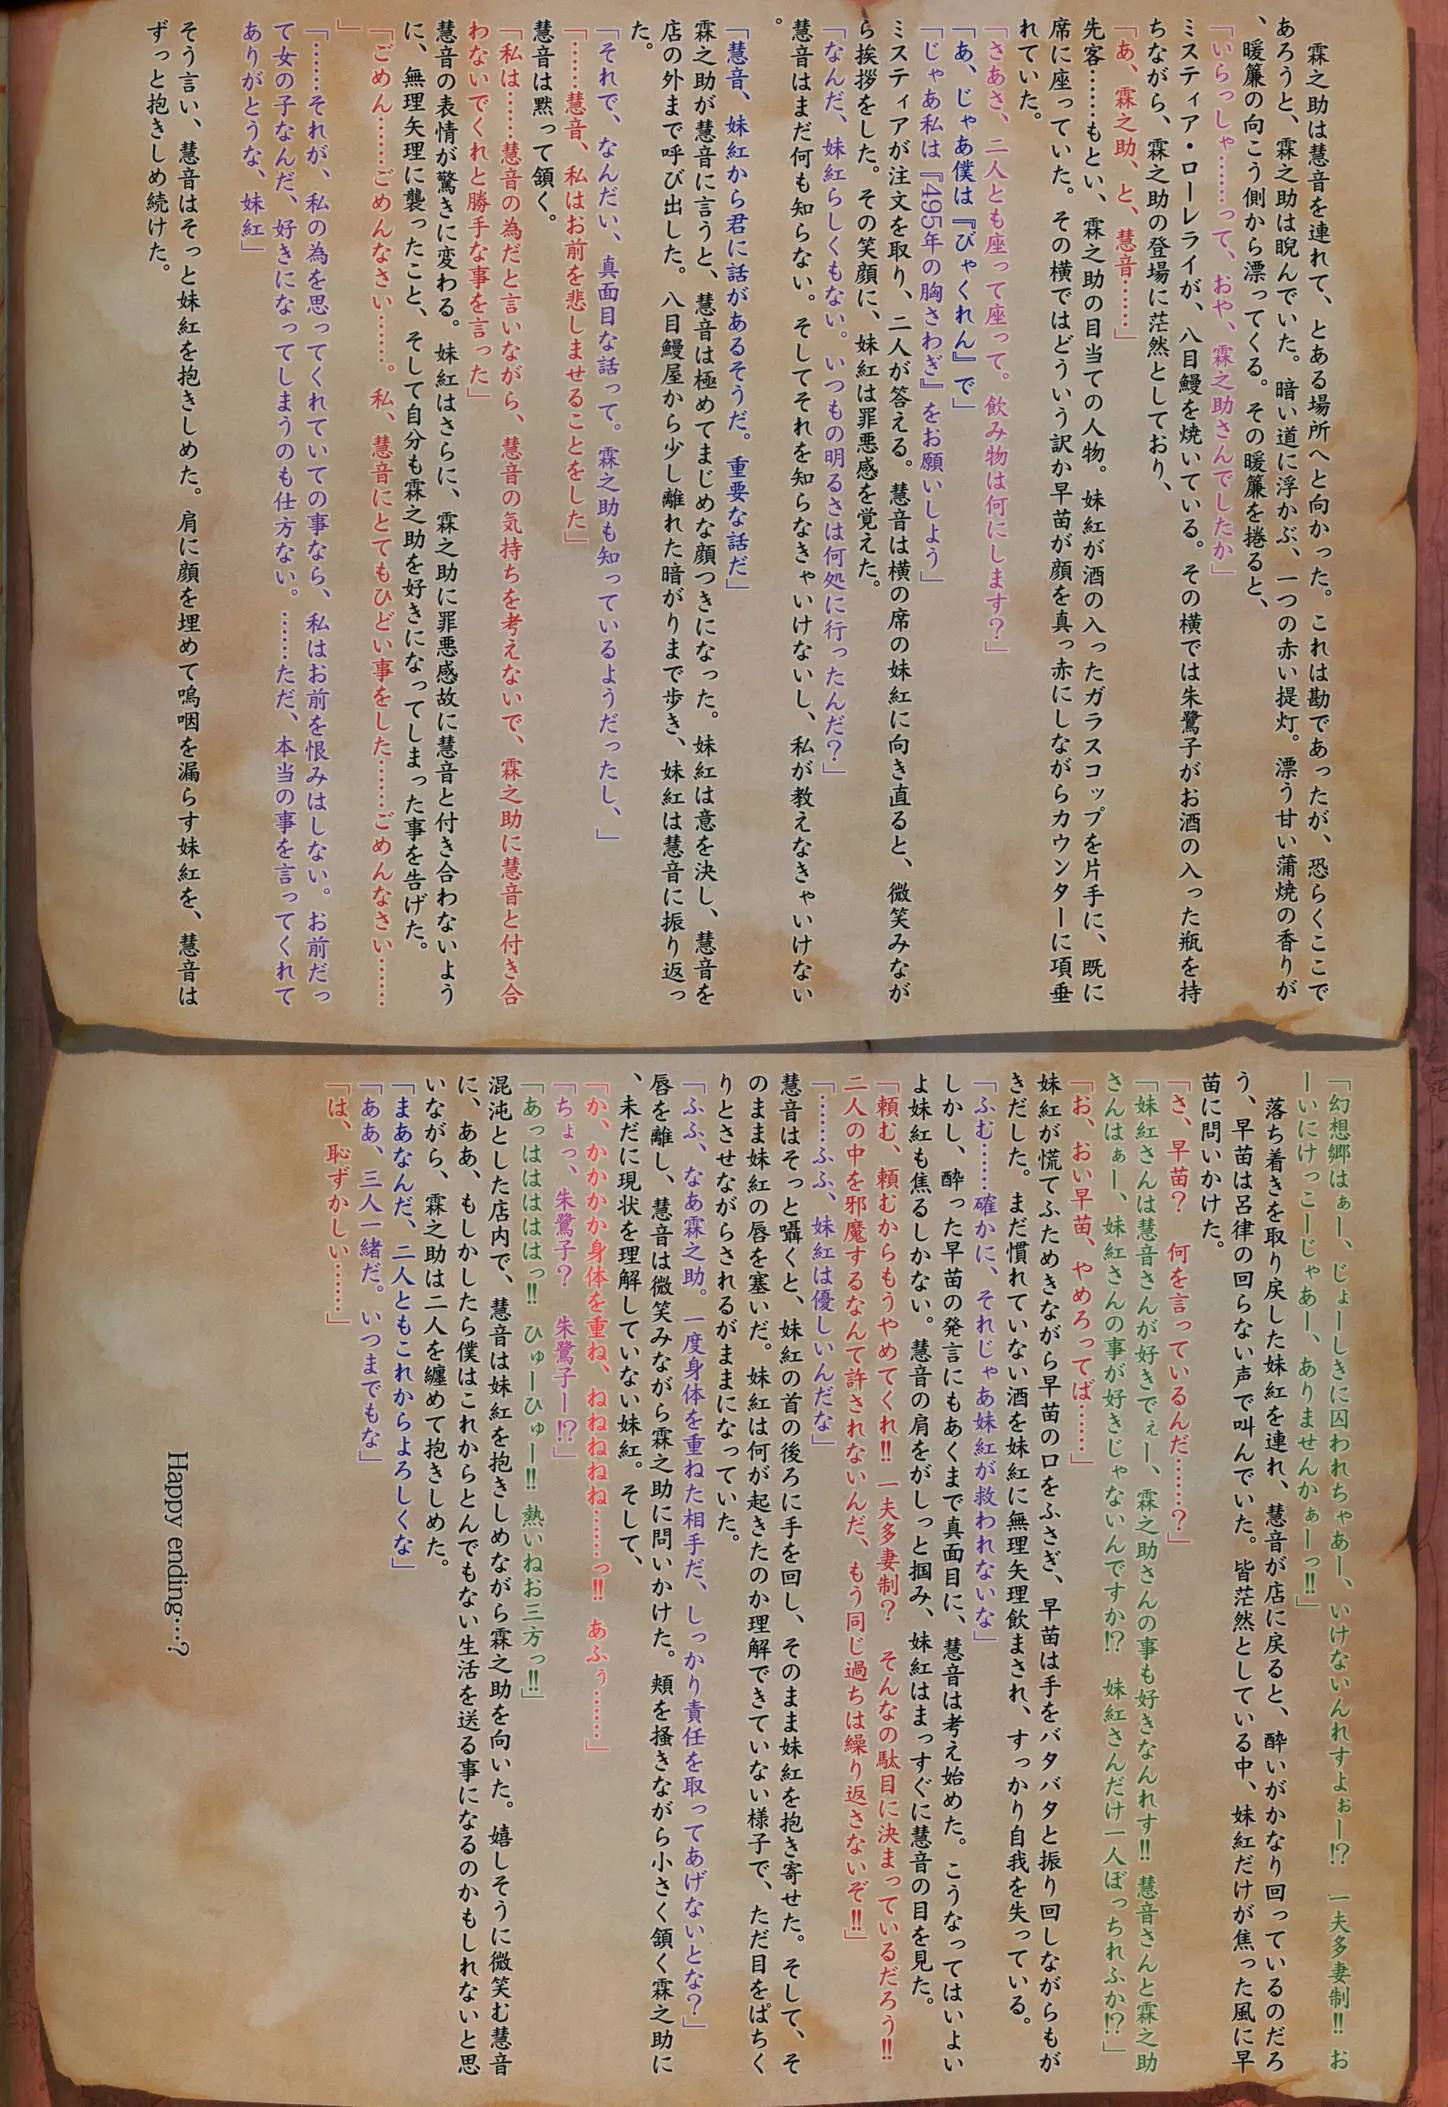 霖之助は慧音を連れて、とある場所へと向かった。これは勘であったが、恐らくここで
あろうと、霖之助は睨んでいた。暗い道に浮かぶ、一つの赤い提灯。漂う甘い蒲焼の香りが
、暖簾の向こう側から漂ってくる。その暖簾を捲ると、
「いらっしゃ……って、おや、霖之助さんでしたか」
ミスティア・ローレライが、八目鰻を焼いている。その横では朱鷺子がお酒の入った瓶を持
ちながら、霖之助の登場に茫然としており、
「あ、霖之助、と、慧音……」
先客……もとい、霖之助の目当ての人物。妹紅が酒の入ったガラスコップを片手に、既に
席に座っていた。その横ではどういう訳か早苗が顔を真っ赤にしながらカウンターに項垂
れていた。
「さあさ、二人とも座って座って。飲み物は何にします？」
「あ、じゃあ僕は『びゃくれん』で」
「じゃあ私は『495年の胸さわぎ』をお願いしよう」
ミスティアが注文を取り、二人が答える。慧音は横の席の妹紅に向き直ると、微笑みなが
ら挨拶をした。その笑顔に、妹紅は罪悪感を覚えた。
「なんだ、妹紅らしくもない。いつもの明るさは何処に行ったんだ？」
慧音はまだ何も知らない。そしてそれを知らなきゃいけないし、私が教えなきゃいけない
。
「慧音、妹紅から君に話があるそうだ。重要な話だ」
霖之助が慧音に言うと、慧音は極めてまじめな顔つきになった。妹紅は意を決し、慧音を
店の外まで呼び出した。八目鰻屋から少し離れた暗がりまで歩き、妹紅は慧音に振り返っ
た。
「それで、なんだい、真面目な話って。霖之助も知っているようだったし、」
「……慧音、私はお前を悲しませることをした」
慧音は黙って頷く。
「私は……慧音の為だと言いながら、慧音の気持ちを考えないで、霖之助に慧音と付き合
わないでくれと勝手な事を言った」
慧音の表情が驚きに変わる。妹紅はさらに、霖之助に罪悪感故に慧音と付き合わないよう
に、無理矢理に襲ったこと、そして自分も霖之助を好きになってしまった事を告げた。
「ごめん……ごめんなさい……。私、慧音にとてもひどい事をした……ごめんなさい……
」
「……それが、私の為を思ってくれていての事なら、私はお前を恨みはしない。お前だっ
て女の子なんだ、好きになってしまうのも仕方ない。……ただ、本当の事を言ってくれて
ありがとうな、妹紅」
そう言い、慧音はそっと妹紅を抱きしめた。肩に顔を埋めて嗚咽を漏らす妹紅を、慧音は
ずっと抱きしめ続けた。
「幻想郷はぁー、じょーしきに囚われちゃあー、いけないんれすよぉー!?　一夫多妻制!!　お
ーいにけっこーじゃあー、ありませんかぁーっ!!」
落ち着きを取り戻した妹紅を連れ、慧音が店に戻ると、酔いがかなり回っているのだろ
う、早苗は呂律の回らない声で叫んでいた。皆茫然としている中、妹紅だけが焦った風に早
苗に問いかけた。
「さ、早苗？　何を言っているんだ……？」
「妹紅さんは慧音さんが好きでぇー、霖之助さんの事も好きなんれす!!　慧音さんと霖之助
さんはぁー、妹紅さんの事が好きじゃないんですか!?　妹紅さんだけ一人ぼっちれふか!?」
「お、おい早苗、やめろってば……」
妹紅が慌てふためきながら早苗の口をふさぎ、早苗は手をバタバタと振り回しながらもが
きだした。まだ慣れていない酒を妹紅に無理矢理飲まされ、すっかり自我を失っている。
「ふむ……確かに、それじゃあ妹紅が救われないな」
しかし、酔った早苗の発言にもあくまで真面目に、慧音は考え始めた。こうなってはいよい
よ妹紅も焦るしかない。慧音の肩をがしっと掴み、妹紅はまっすぐに慧音の目を見た。
「頼む、頼むからもうやめてくれ!!　一夫多妻制？　そんなの駄目に決まっているだろう!!
二人の中を邪魔するなんて許されないんだ、もう同じ過ちは繰り返さないぞ!!」
「……ふふ、妹紅は優しいんだな」
慧音はそっと囁くと、妹紅の首の後ろに手を回し、そのまま妹紅を抱き寄せた。そして、そ
のまま妹紅の唇を塞いだ。妹紅は何が起きたのか理解できていない様子で、ただ目をぱちく
りとさせながらされるがままになっていた。
「ふふ、なあ霖之助。一度身体を重ねた相手だ、しっかり責任を取ってあげないとな？」
唇を離し、慧音は微笑みながら霖之助に問いかけた。頬を掻きながら小さく頷く霖之助に
、未だに現状を理解していない妹紅。そして、
「か、かかかか身体を重ね、ねねねねね……っ!!　あふぅ……」
「ちょっ、朱鷺子？　朱鷺子ー!?」
「あっはははははっ!!　ひゅーひゅー!!　熱いねお三方っ!!」
混沌とした店内で、慧音は妹紅を抱きしめながら霖之助を向いた。嬉しそうに微笑む慧音
に、ああ、もしかしたら僕はこれからとんでもない生活を送る事になるのかもしれないと思
いながら、霖之助は二人を纏めて抱きしめた。
「まあなんだ、二人ともこれからよろしくな」
「ああ、三人一緒だ。いつまでもな」
「は、恥ずかしい……」
Happy ending…?